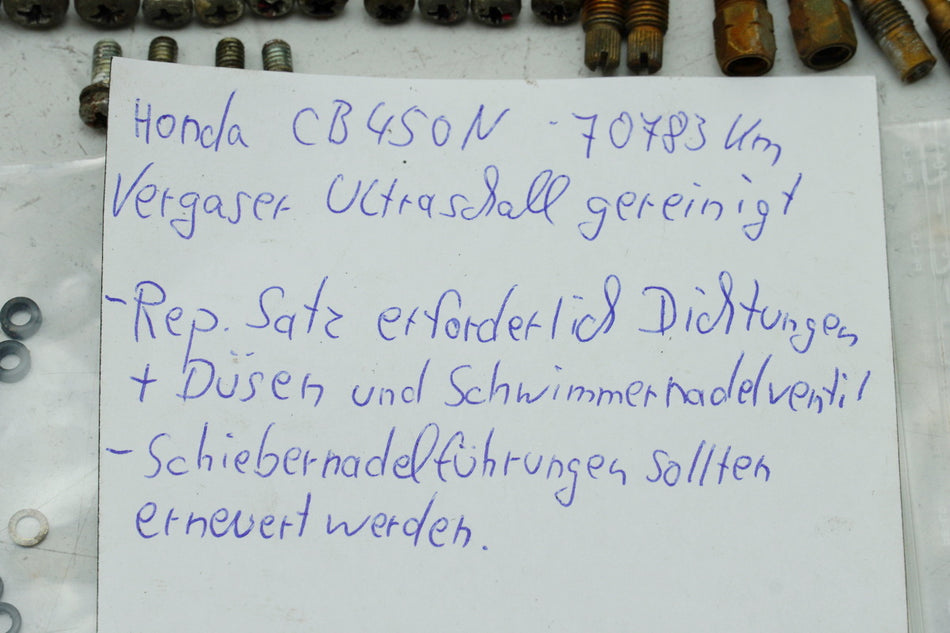 Honda CB450N - 70783 Km
Vergaser Ultraschall gereinigt
- Rep. Satz erforderlich Dichtungen
+ Düsen und Schwimmernadelventil
- Schiebernadelführungen sollten
erneuert werden.